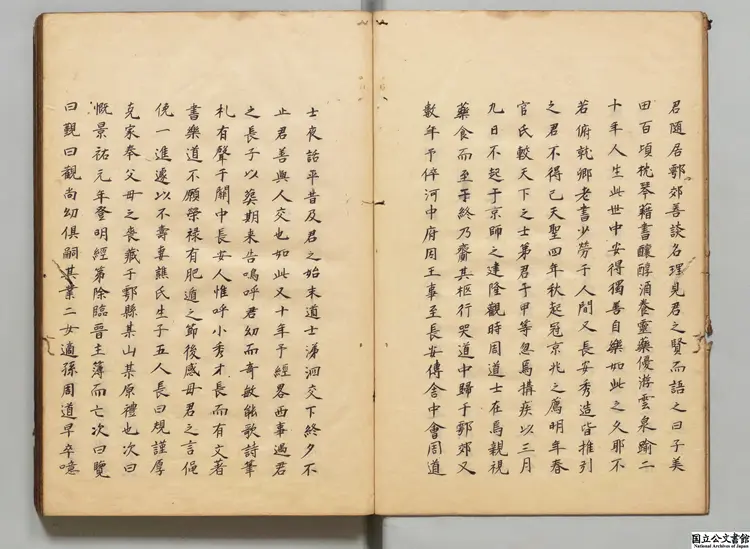 君隨居鄠郊善談名理見君之賢而語之曰子美
田百頃枕琴藉書釀醇涌養靈藥優游雲泉踰二
十年人生此世中安得獨善自樂如此之久耶不
若俯就鄉老書少勞于人間又長安秀造皆推引
之君不得已天聖四年秋起冠京兆之薦明年春
官氏較天下之士第君于甲等忽焉搆疾以三月
九日不起于京師之建隆觀時周道士在焉親視
藥食而至于終乃齎其柩行哭道中歸于鄠郊又
數年予倅河中府周王事至長安傳舍中會周道
士夜話平昔及君之始末道士涕泗交下終夕不
止君善與人交也如此又十年予經畧西事過君
之長子以葬期来告嗚呼君幼而奇敏能歌詩筆
札有聲于關中長安人惟呼小秀才長而有文著
書樂道不願榮禄有肥遁之節後感母君之言僶
俛一進遽以不壽妻譙氏生子五人長曰規謹厚
克家奉父母之喪藏于鄠縣某山某原禮也次曰
慨景祐元年登明經第除臨晉主簿而亡次曰覽
曰覲曰觀尚幼俱嗣其業二女適孫周道早卒噫
国立公文書館
National Archives of Japan